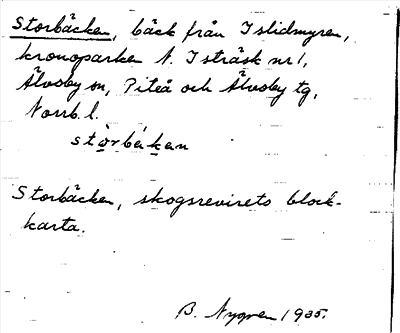 Storbäcken, bäck från Islidmyren,
kronoparken N. Isträsk nr 1,
Älvsby sn, Piteå och Älvsby tg,
Norrb. l.
stòrbékan
Storbäcken, skogsrevirets block-
karta.
B. Nygren 1935.